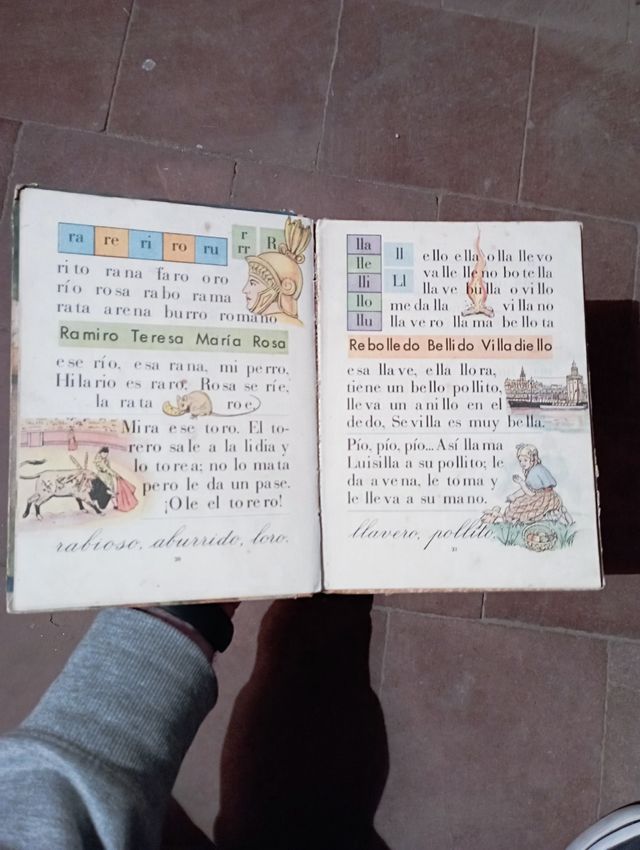 ra re ri ro ru r rr R
rito rana faro oro
río rosa rabo rama
rata arena burro romano
Ramiro Teresa María Rosa
ese río, esa rana, mi perro,
Hilario es raro. Rosa se ríe,
la rata roe.
Mira ese toro. El to-
rero sale a la lidia y
lo torea; no lo mata
pero le da un pase.
¡Ole el torero!
rabioso, aburrido, loro.
20
lla
lle
lli
llo
llu
ll
Ll
ello ella olla llevo
valle lleno botella
llave bulla ovillo
medalla villano
llavero llama bellota
Rebolledo Bellido Villadiello
esa llave, ella llora,
tiene un bello pollito,
lleva un anillo en el
dedo, Sevilla es muy bella.
Pío, pío, pío... Así llama
Luisilla a su pollito; le
da avena, le toma y
le lleva a su mano.
llavero, pollito.
21